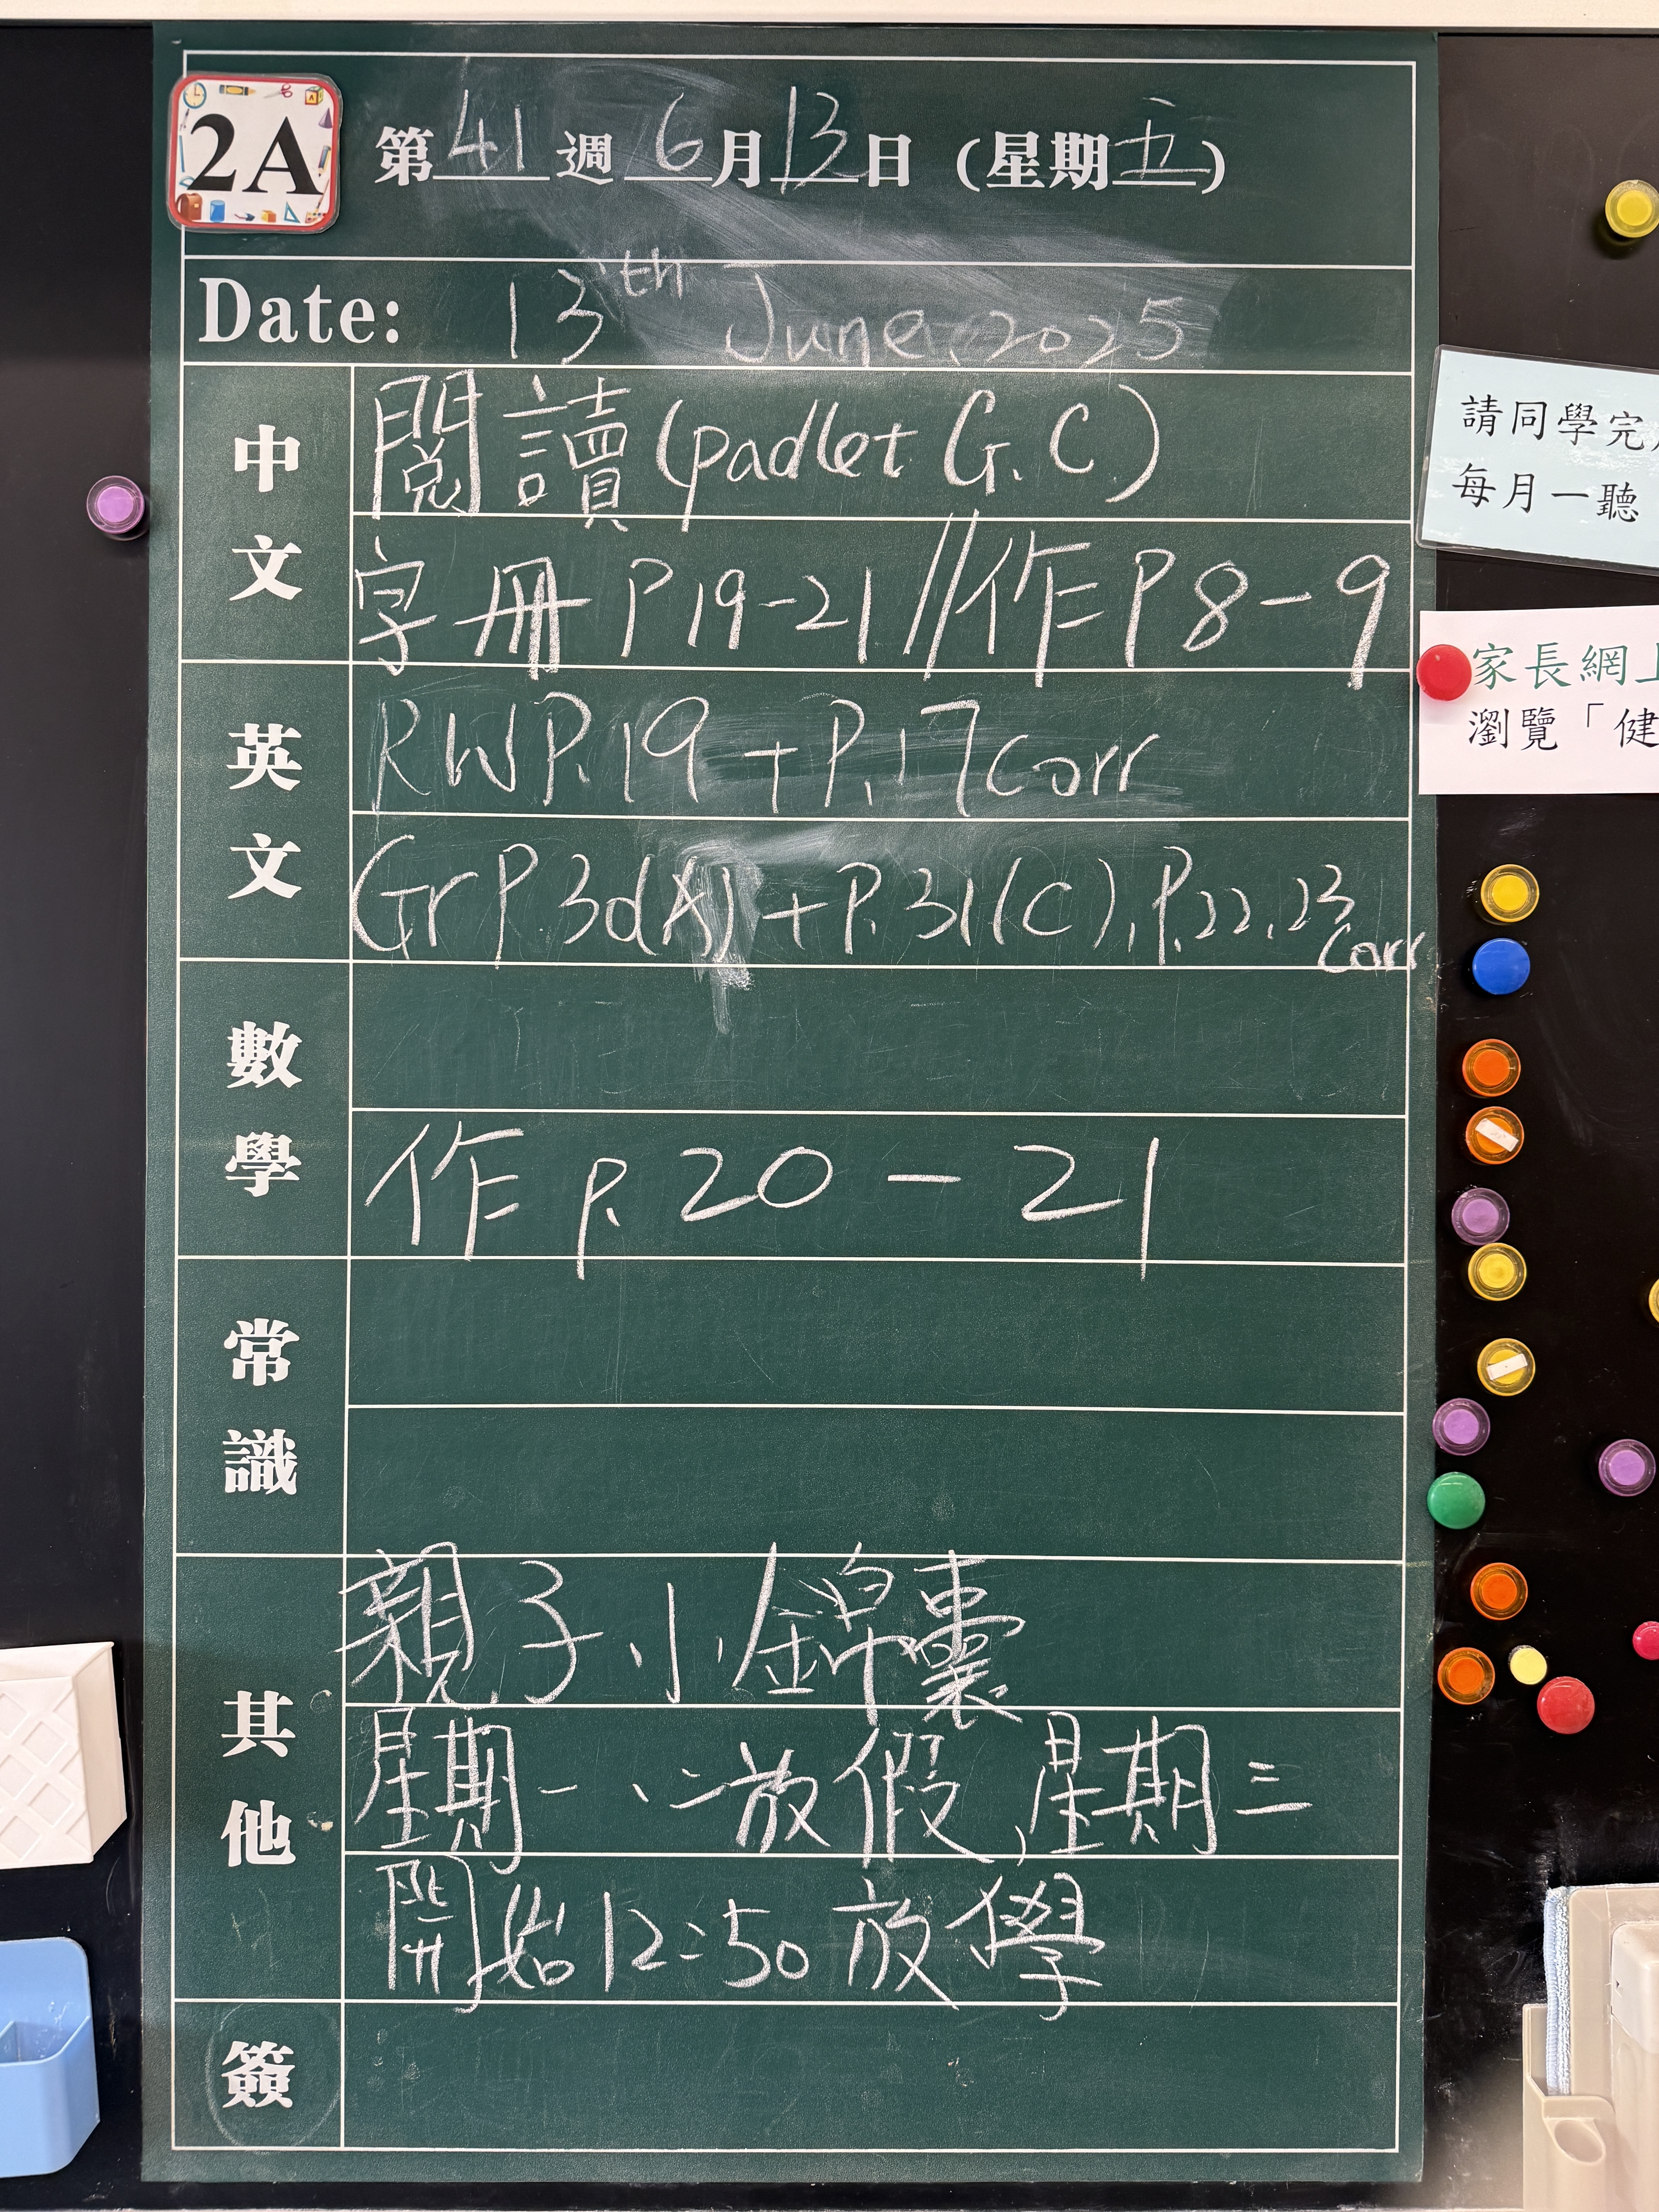 2A
第41週 6月13日(星期五)
Date: 13th June, 2025
中文
閱讀(padlet G.C)
字冊 P19-21 // 作 P8-9
英文
RW P.19 + P.17 corr
Gr P.30(A) + P.31(C), P.22,23 corr
數學
作 P.20-21
常識
其他
親子小錦囊
星期一、二放假,星期三
開始12:50放學
簽
請同學完
每月一聽
家長網上
瀏覽「健